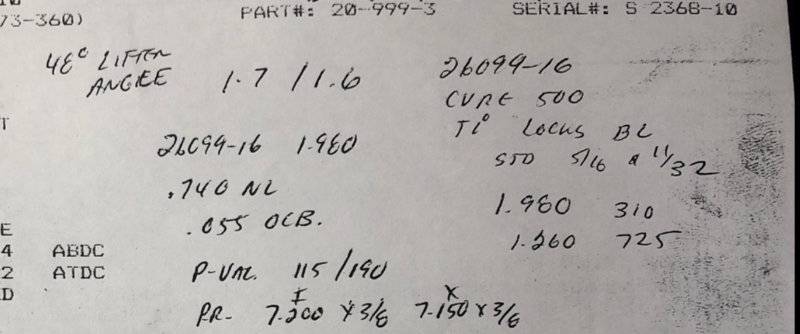 73-360)
PART#: 20-999-3
SERIAL#: S 2368-10
48° LIFTER
ANGLE
1.7 / 1.6
26099-16
CURE 500
T
TI° LOCKS BL
26099-16 1.980
STD 5/16 & 11/32
.740 NL
1.980 310
.055 OCB.
E
1.260 725
4 ABDC
2 ATDC
P-VAL. 115/190
D
I X
P.R- 7.200 X 3/8 7.150 X 3/8